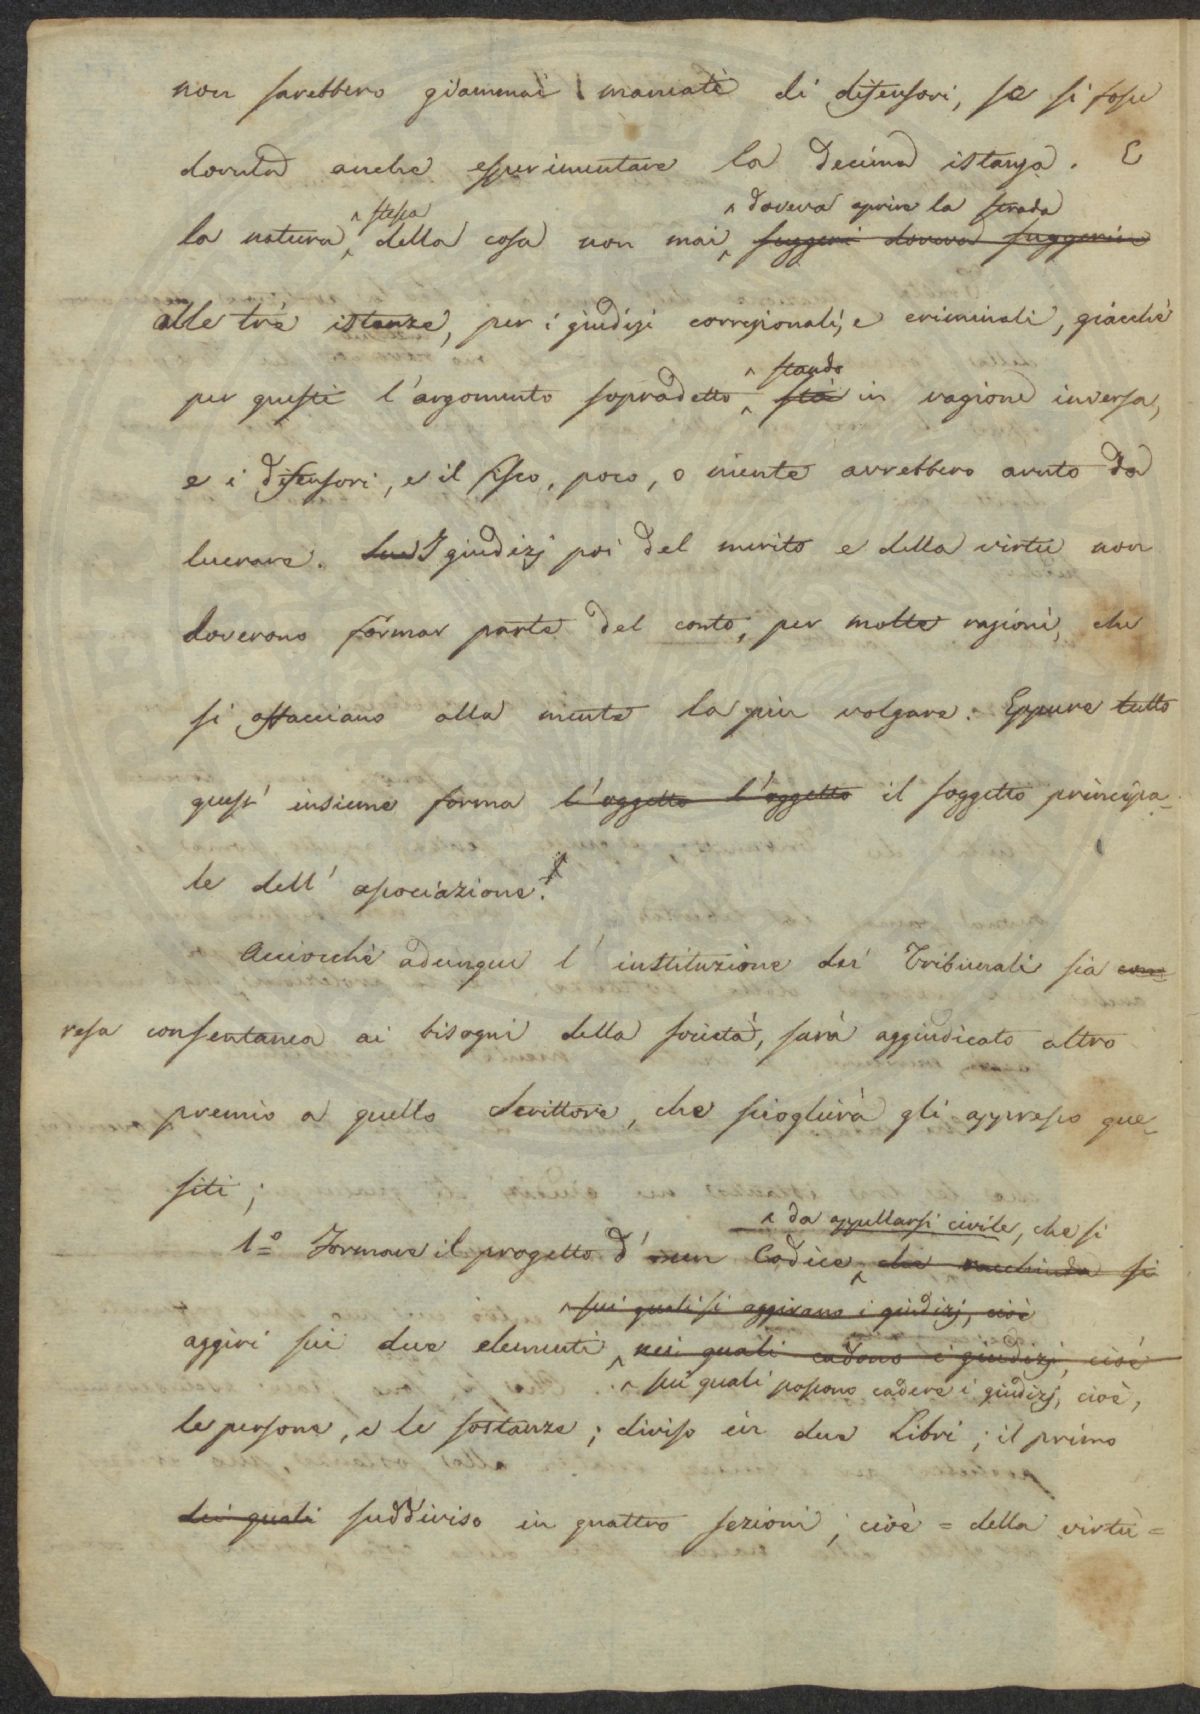 non sarebbero giammai mancati di difensori, se si fosse
dovuta anche esperimentare la decima istanza. E
^ stessa ^ doveva aprire la strada
la natura ^ della cosa non mai ^ suggeri doveva suggerire
alle trè istanze, per i giudizj correzionali, e criminali, giacchè
^ stando
per questi l'argomento sopradetto ^ stà in ragione inversa,
e i difensori, e il fisco, poco, o niente avrebbero avuto da
lucrare. I giudizj poi del merito e della virtù non
doverono formar parte del conto, per molte ragioni, che
si affacciano alla mente la più volgare. Eppure tutto
quest' insieme forma l'oggetto l'oggetto il soggetto principa-
le dell' associazione.
Acciocchè adunque l' instituzione dei Tribunali sia
resa consentanea ai bisogni della società, sarà aggiudicato altro
premio a quello Scrittore, che scioglierà gli appresso que-
siti;
^ da appellarsi civile, che si
1º Formare il progetto d' un Codice ^ che racchiuda si
^ sui quali si aggirano i giudizj, cioè
aggiri sui due elementi ^ nei quali cadono i giudizj, cioè
^ sui quali possono cadere i giudizj, cioè,
le persone, e le sostanze; diviso in due Libri; il primo
dei quali suddiviso in quattro sezioni; cioè = della virtù =